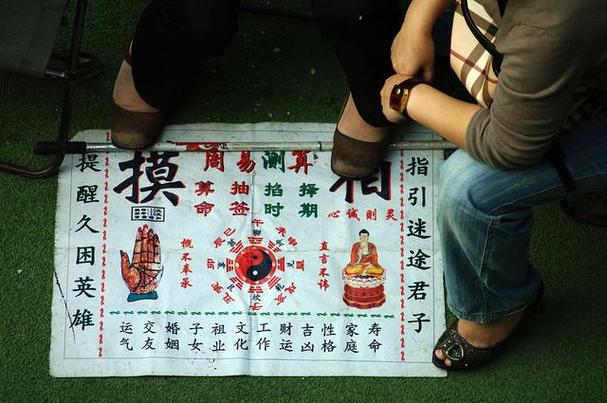 周易测算
摸相
算命 抽签 掐时 择期
心诚则灵
提醒久困英雄
指引迷途君子
概不奉承
直言不讳
运气 交友 婚姻 子女 祖业 文化 工作 财运 吉凶 性格 家庭 寿命